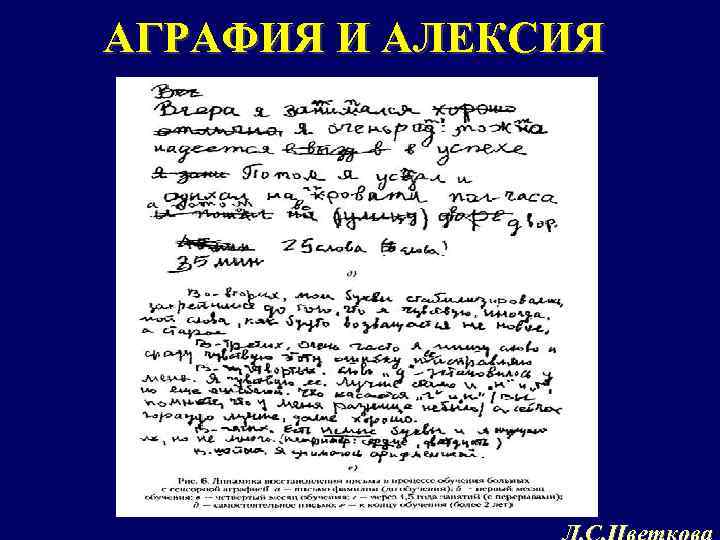 АГРАФИЯ И АЛЕКСИЯ
Вчера я занимался хорошо
отлично, я очень рад! можно
надеется в в успехе
Потом я устал и
одихал на кровати пол-часа
а потом (улицу) двор.
25 слова (5 слова!
35 мин
д)
Во-вторих, мои букви стабилизировались,
закрепился до того, что я чувствую, иногда.
пой слова, как будто возвращается не новое,
а старое.
В-третих, очень часто я пишу слово и
сразу чувствую эту ошибку и исправляю
слово "д" установилось у
меня. Я чувствую ее. Лучше стало и "н" и "т"
но еще Что касается "г" и "к"
что у меня разнице нетило а сейчас
гораздо лучше, даже хорошо.
Есть немие букви и я
их, но не много. (например: сердце, двадцать)
Я
е)
Рис. 6. Динамика восстановления письма в процессе обучения больных
с сенсорной аграфией а — письмо фамилии (до обучения); б — первый месяц
обучения; в — четвертый месяц обучения; г — через 1,5 года занятий (с перерывами);
д — самостоятельное письмо; е — к концу обучения (более 2 лет)
Л.С.Цветкова